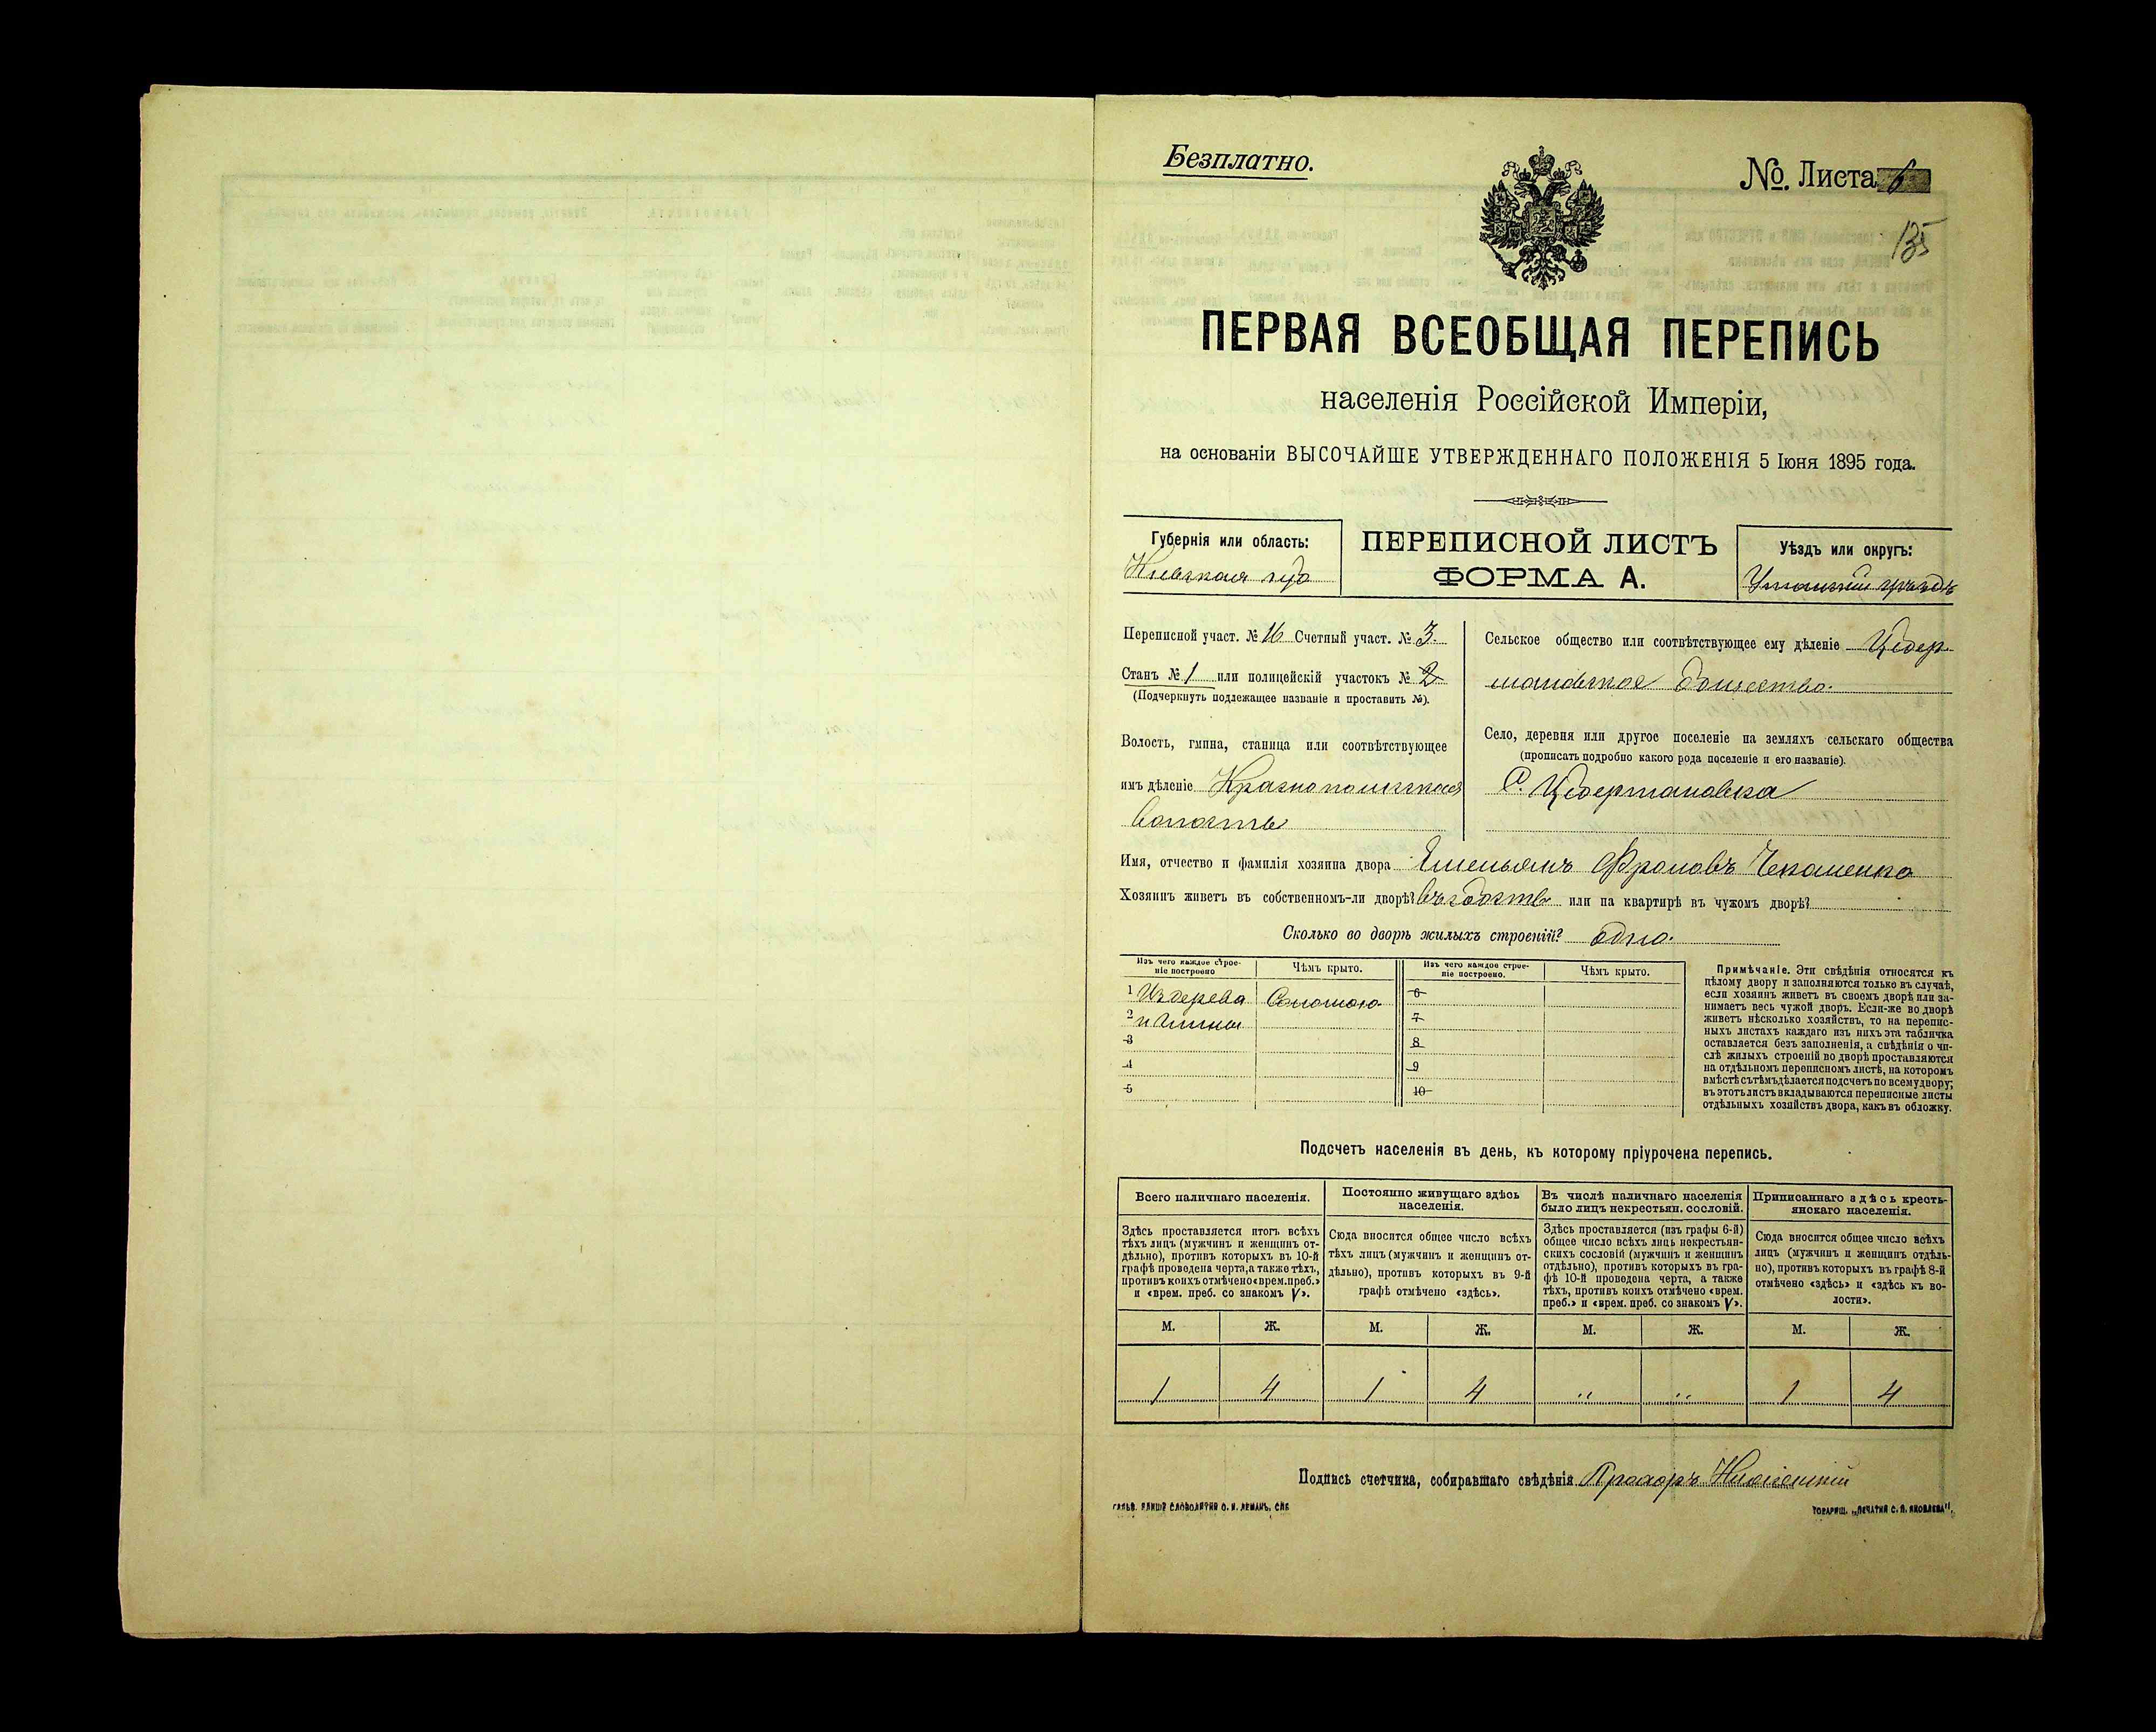 Безплатно.
№. Листа 6
135
ПЕРВАЯ ВСЕОБЩАЯ ПЕРЕПИСЬ
населенія Россійской Имперіи,
на основаніи ВЫСОЧАЙШЕ УТВЕРЖДЕННАГО ПОЛОЖЕНІЯ 5 Іюня 1895 года.
Губернія или область:
Кіевская губ
ПЕРЕПИСНОЙ ЛИСТЪ
ФОРМА А.
Уѣздъ или округъ:
Уманскій уѣздъ
Переписной участ. № 16 Счетный участ. № 3.
Станъ № 1 или полицейскій участокъ № 2
(Подчеркнуть подлежащее названіе и проставить №).
Волость, гмина, станица или соотвѣтствующее
имъ дѣленіе Краснополисская
волость
Сельское общество или соотвѣтствующее ему дѣленіе Цебер
мановское общество.
Село, деревня или другое поселеніе на земляхъ сельскаго общества
(прописать подробно какого рода поселеніе и его названіе).
С. Цебермановка
Имя, отчество и фамилія хозяина двора Емельянъ Фроловъ Чекаленко
Хозяинъ живетъ въ собственномъ-ли дворѣ? въ собств или на квартирѣ въ чужомъ дворѣ?
Сколько во дворѣ жилыхъ строеній? одно.
Изъ чего каждое строе-
ніе построено
Чѣмъ крыто.
Изъ чего каждое строе-
ніе построено.
Чѣмъ крыто.
1 Издерева Соломою 6
2 и глины 7
3 8
4 9
5 10
Примѣчаніе. Эти свѣдѣнія относятся къ
цѣлому двору и заполняются только въ случаѣ,
если хозяинъ живетъ въ своемъ дворѣ или за-
нимаетъ весь чужой дворъ. Если-же во дворѣ
живетъ нѣсколько хозяйствъ, то на перепис-
ныхъ листахъ каждаго изъ нихъ эта табличка
оставляется безъ заполненія, а свѣдѣнія о чи-
слѣ жилыхъ строеній во дворѣ проставляются
на отдѣльномъ переписномъ листѣ, на которомъ
вмѣстѣ съ тѣмъ дѣлается подсчетъ по всему двору;
въ этотъ листъ вкладываются переписные листы
отдѣльныхъ хозяйствъ двора, какъ въ обложку.
Подсчетъ населенія въ день, къ которому пріурочена перепись.
Всего наличнаго населенія.
Здѣсь проставляется итогъ всѣхъ
тѣхъ лицъ (мужчинъ и женщинъ от-
дѣльно), противъ которыхъ въ 10-й
графѣ проведена черта, а также тѣхъ,
противъ коихъ отмѣчено «врем. преб.»
и «врем. преб. со знакомъ V».
Постоянно живущаго здѣсь
населенія.
Сюда вносится общее число всѣхъ
тѣхъ лицъ (мужчинъ и женщинъ от-
дѣльно), противъ которыхъ въ 9-й
графѣ отмѣчено «здѣсь».
Въ числѣ наличнаго населенія
было лицъ некрестьян. сословій.
Здѣсь проставляется (изъ графы 6-й)
общее число всѣхъ лицъ некрестьян-
скихъ сословій (мужчинъ и женщинъ
отдѣльно), противъ которыхъ въ гра-
фѣ 10-й проведена черта, а также
тѣхъ, противъ коихъ отмѣчено «врем.
преб.» и «врем. преб. со знакомъ V».
Приписаннаго здѣсь кресть-
янскаго населенія.
Сюда вносится общее число всѣхъ
лицъ (мужчинъ и женщинъ отдѣль-
но), противъ которыхъ въ графѣ 8-й
отмѣчено «здѣсь» и «здѣсь къ во-
лости».
М. Ж. М. Ж. М. Ж. М. Ж.
1 4 1 4 " " 1 4
Подпись счетчика, собиравшаго свѣдѣнія Прохоръ
ТОВАРИЩ. „ПЕЧАТНЯ С. П. ЯКОВЛЕВА".